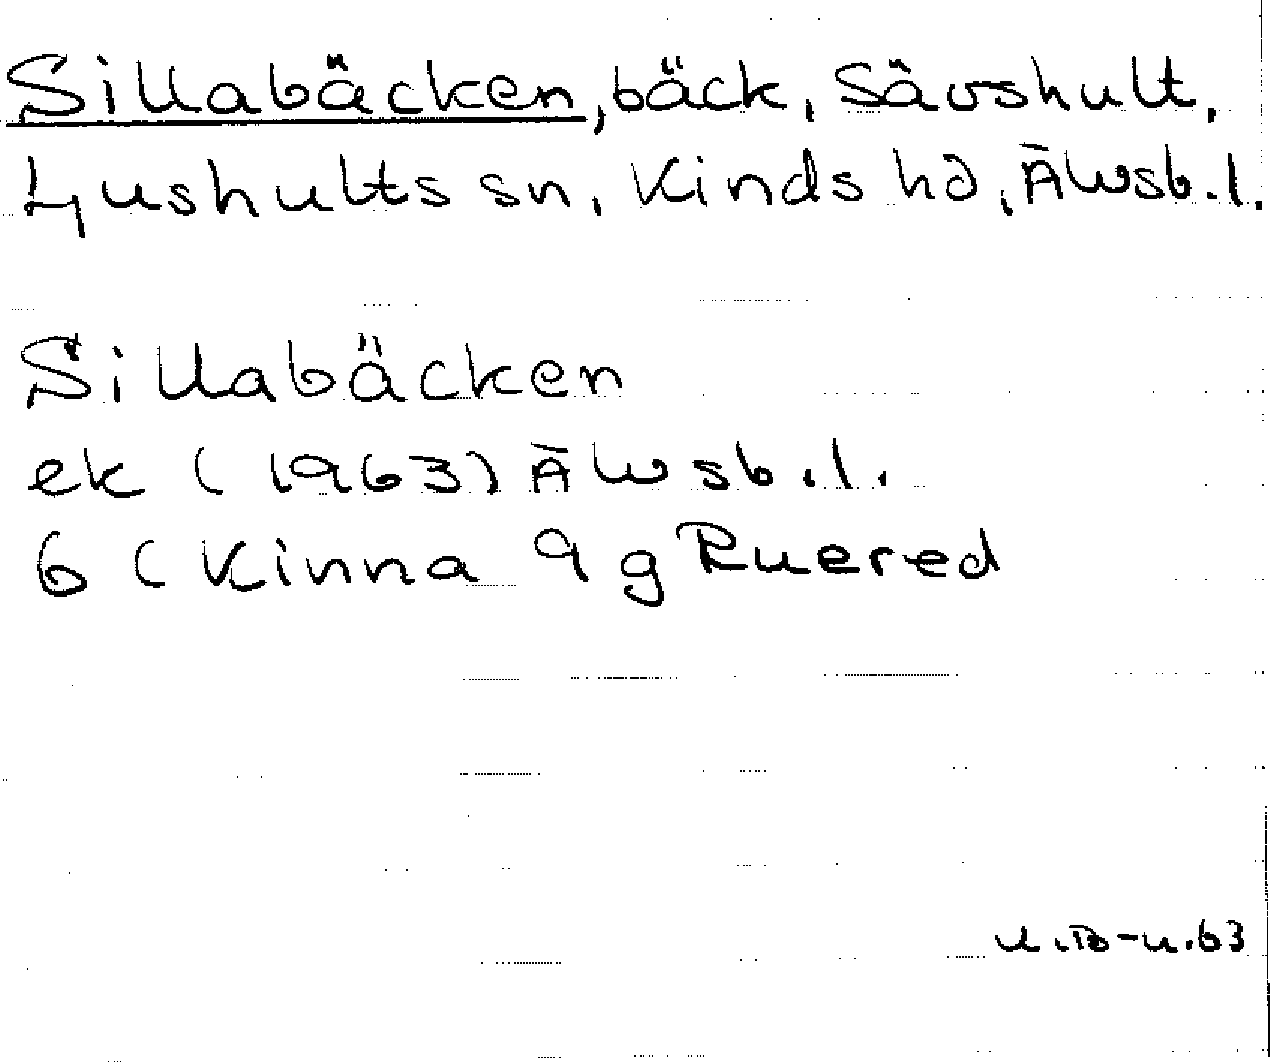 Sillabäcken, bäck, Sävshult,
Ljushults sn, Kinds hd, Älvsb.l.
Sillabäcken
ek (1963) Älvsb.l.
6 ( Kinna 9 g Ruered